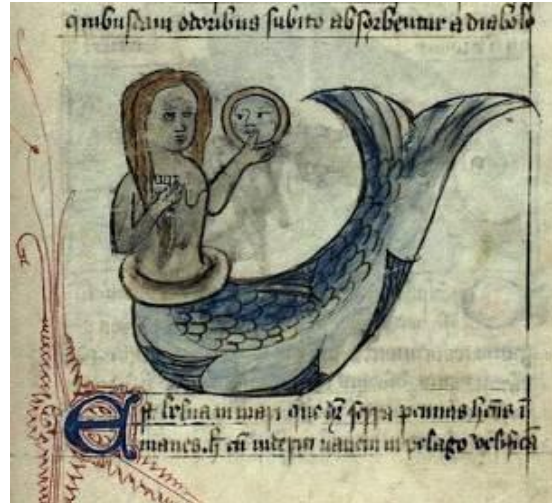 quibusdam odoribus subito absorbentur a diabolo
Est belua in mari que dr̄ serra pennas hēns ī
manes. h̄ cū nauem in pelago velificā